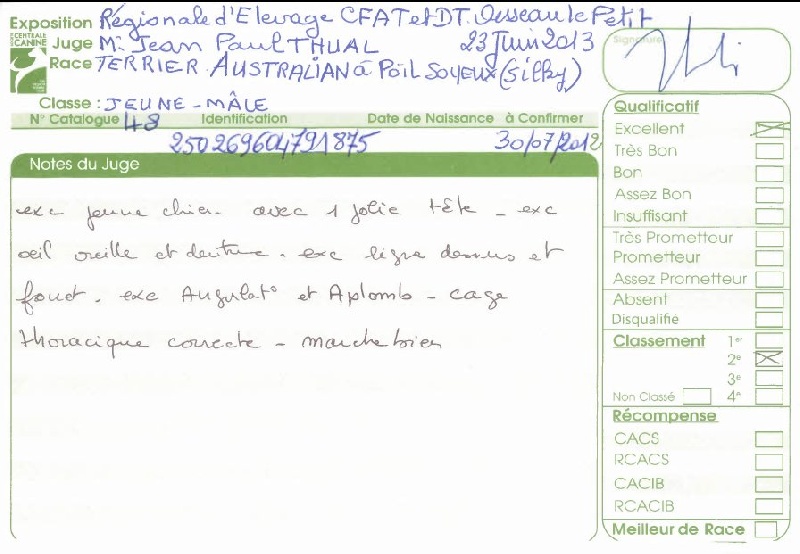 Exposition Régionale d'Elevage CFAT et DT. Oesseau le Petit
CENTRALE CANINE
Juge Mr Jean Paul THUAL 23 Juin 2013
Race TERRIER AUSTRALIAN à Poil Soyeux (Silky)
Classe : JEUNE - MÂLE
N° Catalogue 48 Identification Date de Naissance à Confirmer
250269604791875 30/07/2012
Notes du Juge
exc jeune chien avec 1 jolie tête - exc
oeil oreille et denture. exc ligne dessus et
fouet. exc Angulat° et Aplomb - cage
thoracique correcte - marche bien
Signature
Qualificatif
Excellent
Très Bon
Bon
Assez Bon
Insuffisant
Très Prometteur
Prometteur
Assez Prometteur
Absent
Disqualifié
Classement 1er
2e
3e
Non Classé 4e
Récompense
CACS
RCACS
CACIB
RCACIB
Meilleur de Race